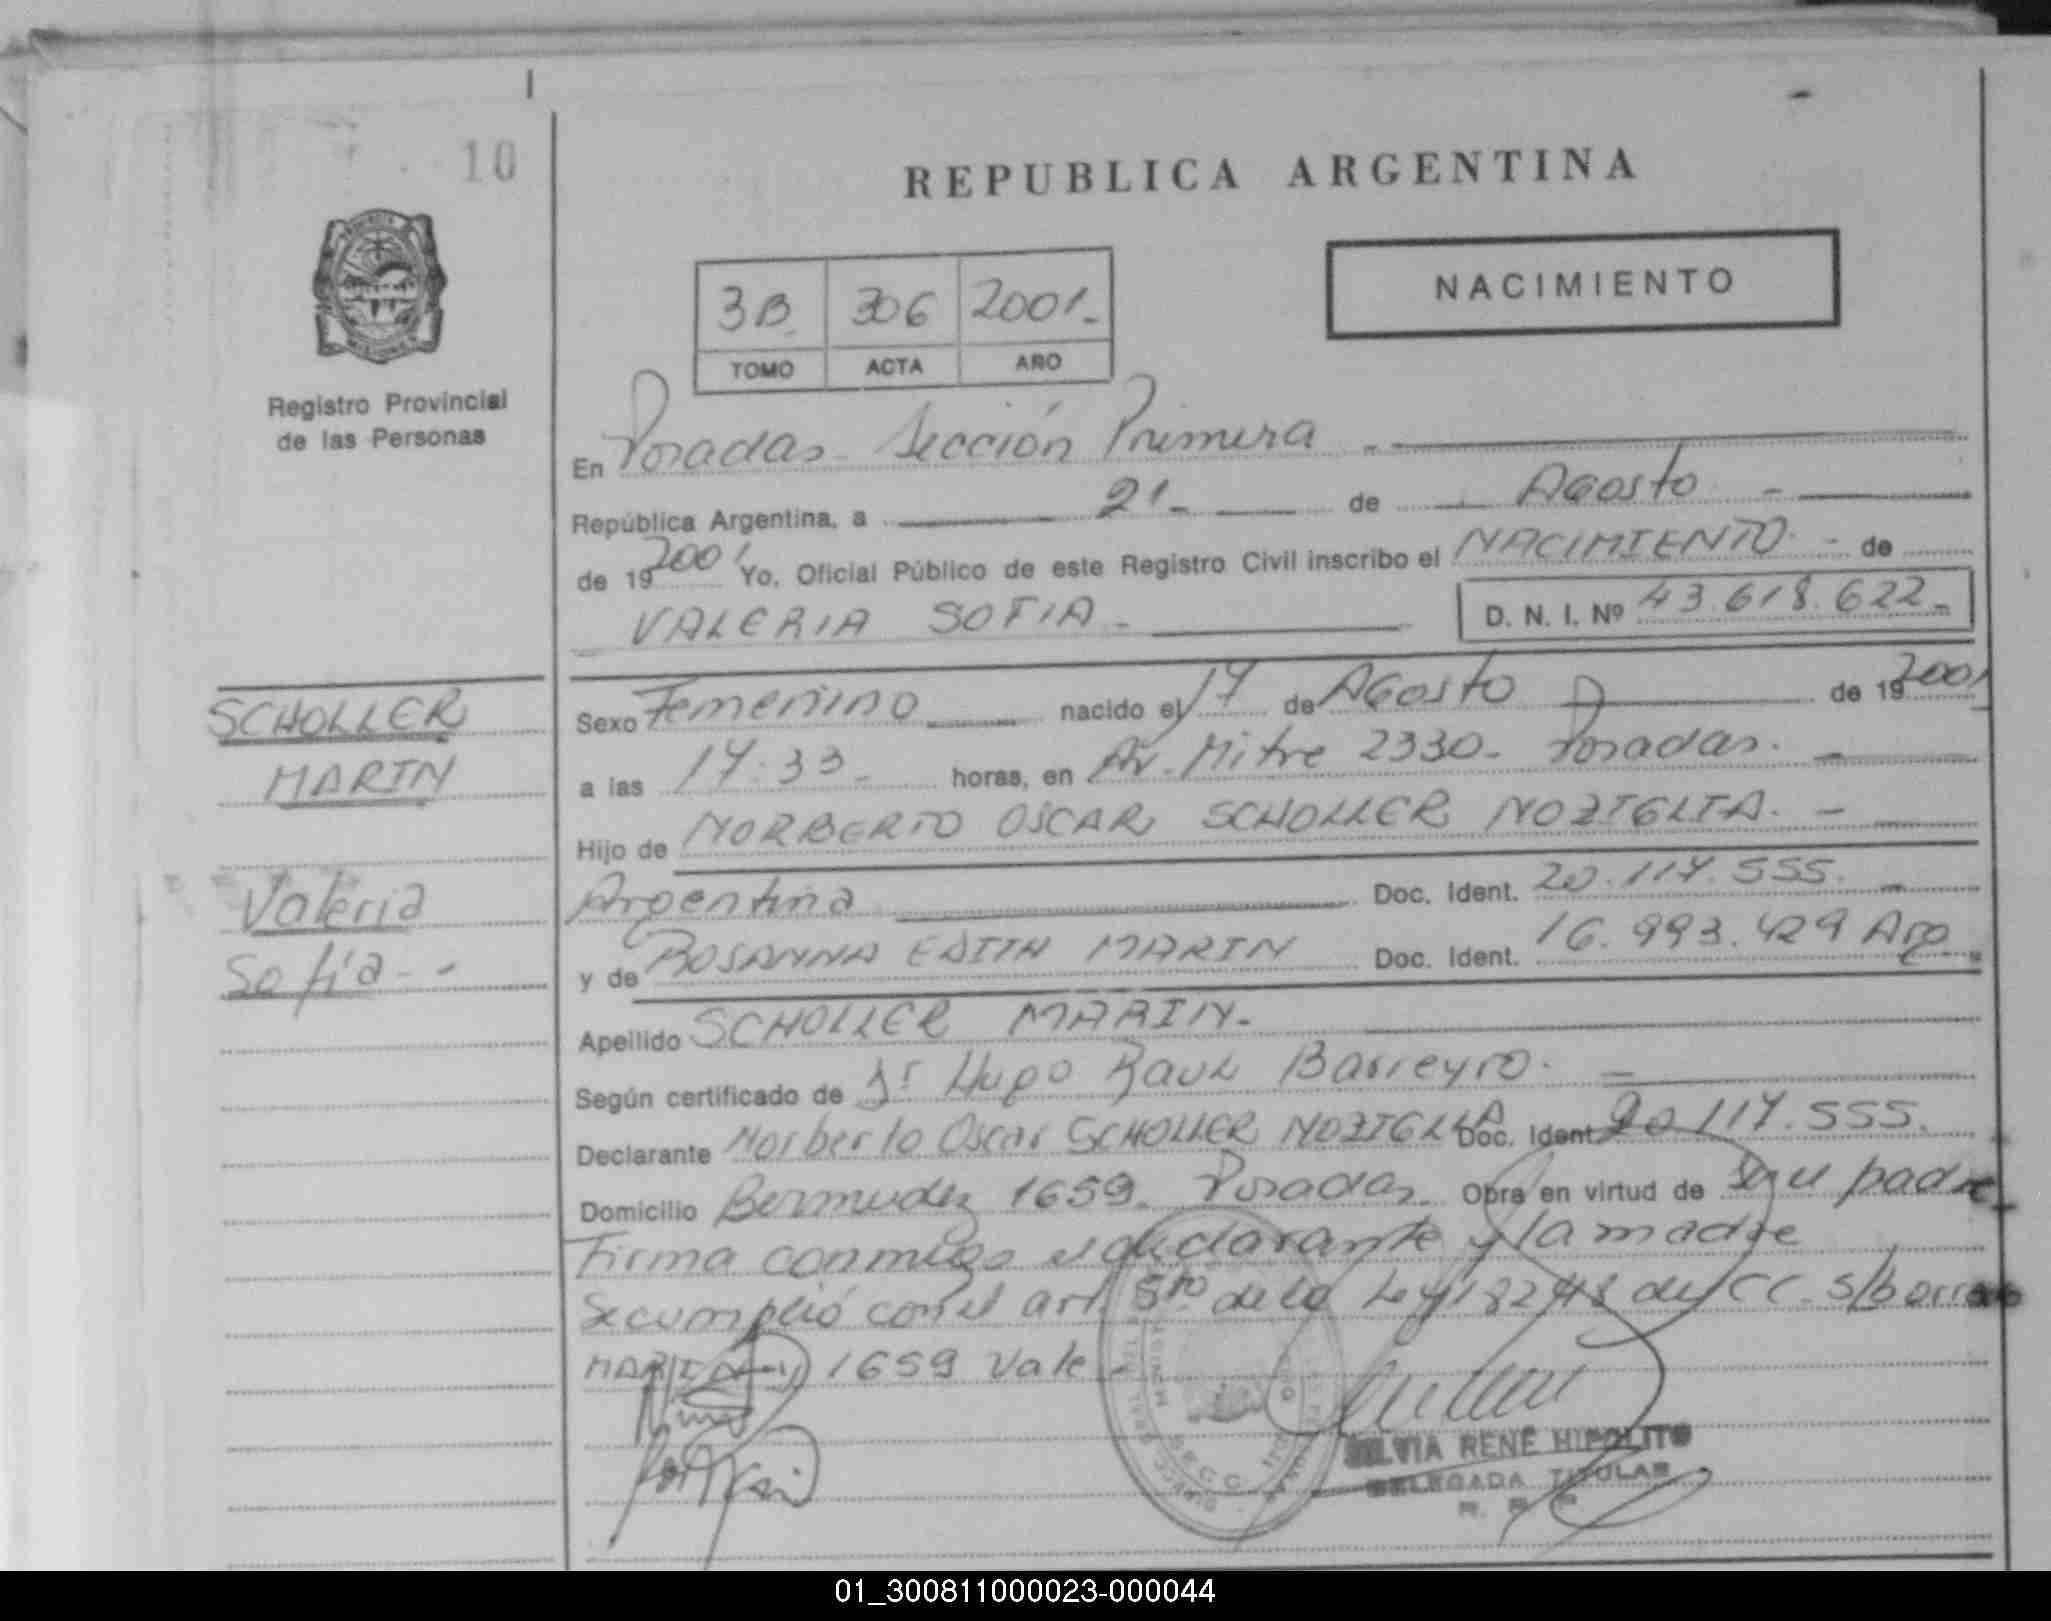 10
REPUBLICA ARGENTINA
NACIMIENTO
3B 306 2001
TOMO ACTA AÑO
Registro Provincial
de las Personas
En Posadas Sección Primera
República Argentina, a 21 de Agosto
de 19 2001 Yo, Oficial Público de este Registro Civil inscribo el NACIMIENTO de
VALERIA SOFIA D. N. I. Nº 43.618.622
SCHOLLER
MARIN
Valeria
Sofía
Sexo Femenino nacido el 17 de Agosto de 19 2001
a las 17.33 horas, en Av. Mitre 2330 Posadas.
Hijo de NORBERTO OSCAR SCHOLLER NOZIGLIA.
Argentina Doc. Ident. 20.117.555.
y de ROSANNA EDITH MARIN Doc. Ident. 16.993.429 Arg
Apellido SCHOLLER MARIN.
Según certificado de Dr Hugo Raul Barreyro.
Declarante Norberto Oscar SCHOLLER NOZIGLIA Doc. Ident 20.117.555.
Domicilio Bermudez 1659. Posadas. Obra en virtud de ser su padre
Firma conmigo el declarante y la madre
Se cumplió con el art. 5to de la Ley 18248 del CC. S/borrado
MARIN 1659 Vale
SILVIA RENE HIPOLITO
DELEGADA TITULAR
01_300811000023-000044